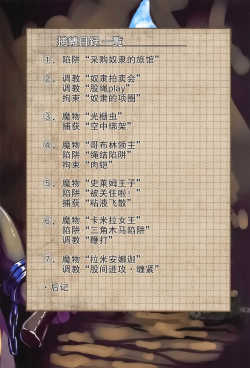 插辅目录一览
1. 陷阱“采购奴隶的旅馆”
2. 调教“奴隶拍卖会”
调教“股绳play”
拘束“奴隶的项圈”
3. 魔物“光栅虫”
捕获“空中绑架”
4. 魔物“哥布林领主”
陷阱“绳结陷阱”
拘束“肉铠”
5. 魔物“史莱姆王子”
陷阱“被关住啦！”
捕获“粘液飞散”
6. 魔物“卡米拉女王”
陷阱“三角木马陷阱”
调教“鞭打”
7. 魔物“拉米安娜迦”
调教“股间进攻·缠紧”
·后记